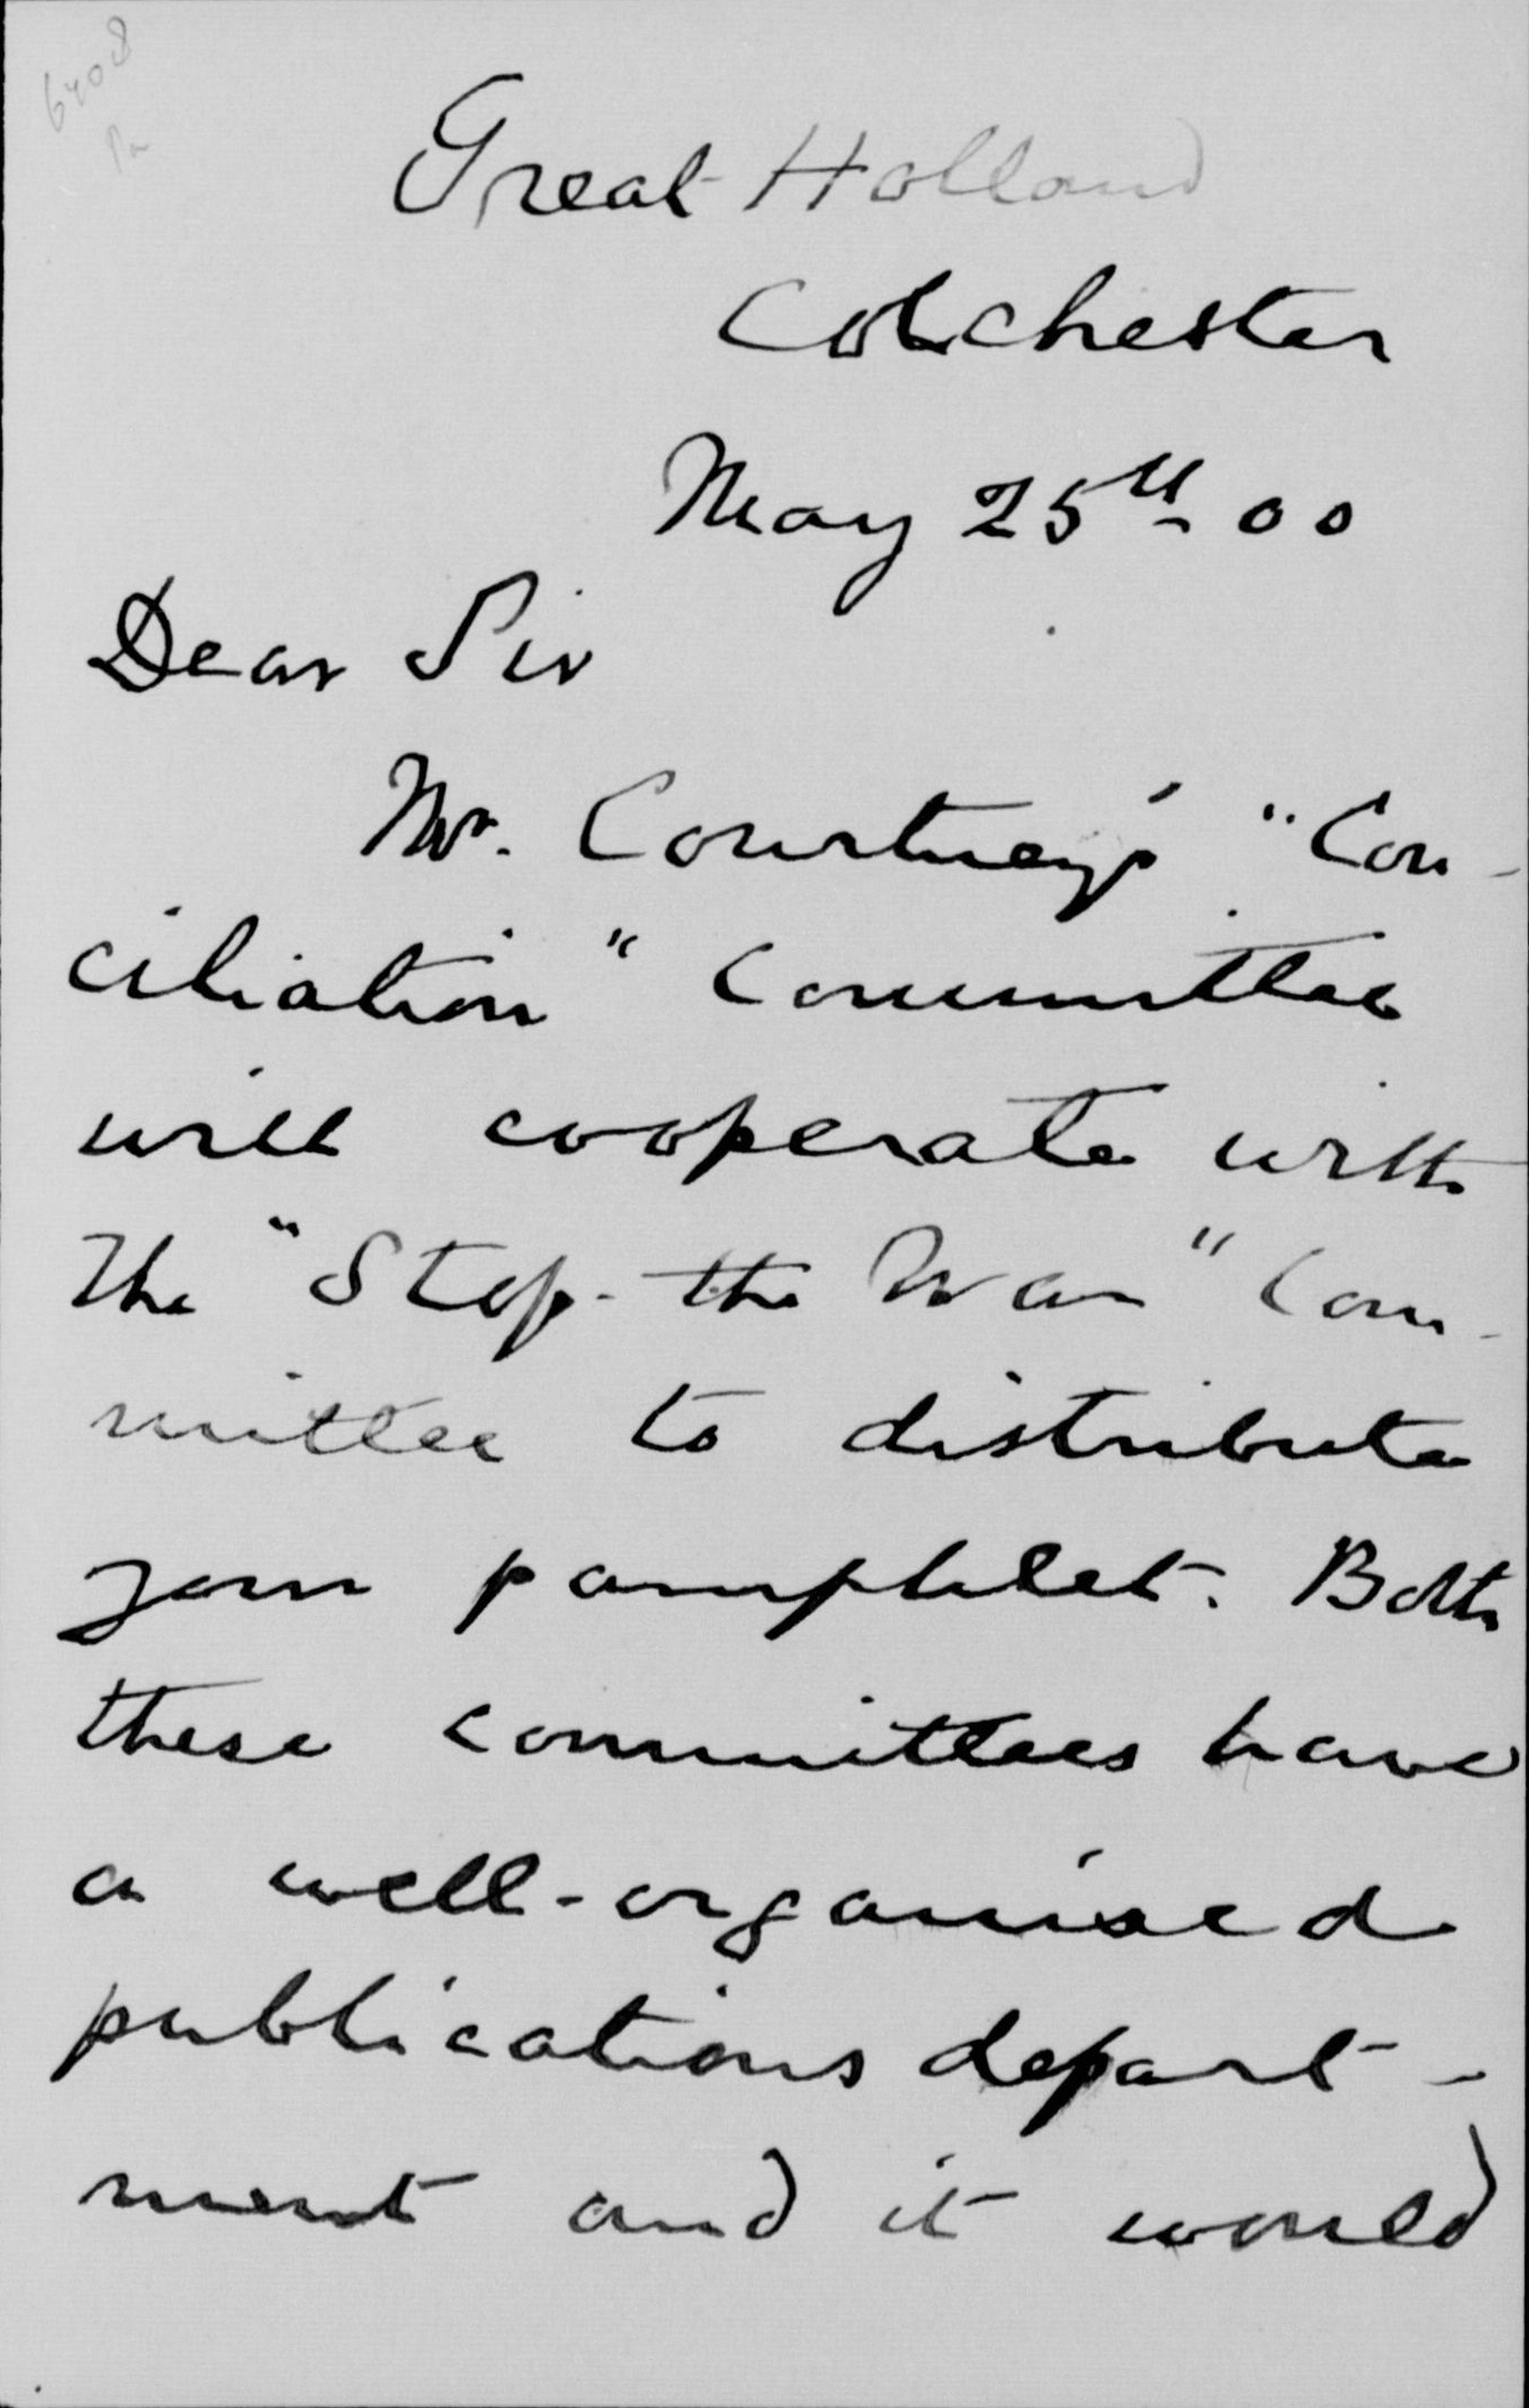 6408
Great Holland
Colchester
May 25th 00
Dear Sir
Mr. Courtney's "Con-
ciliation" Committee
will cooperate with
the "Stop-the War" Com-
mittee to distribute
your pamphlet. Both
these committees have
a well-organised
publications depart-
ment and it would